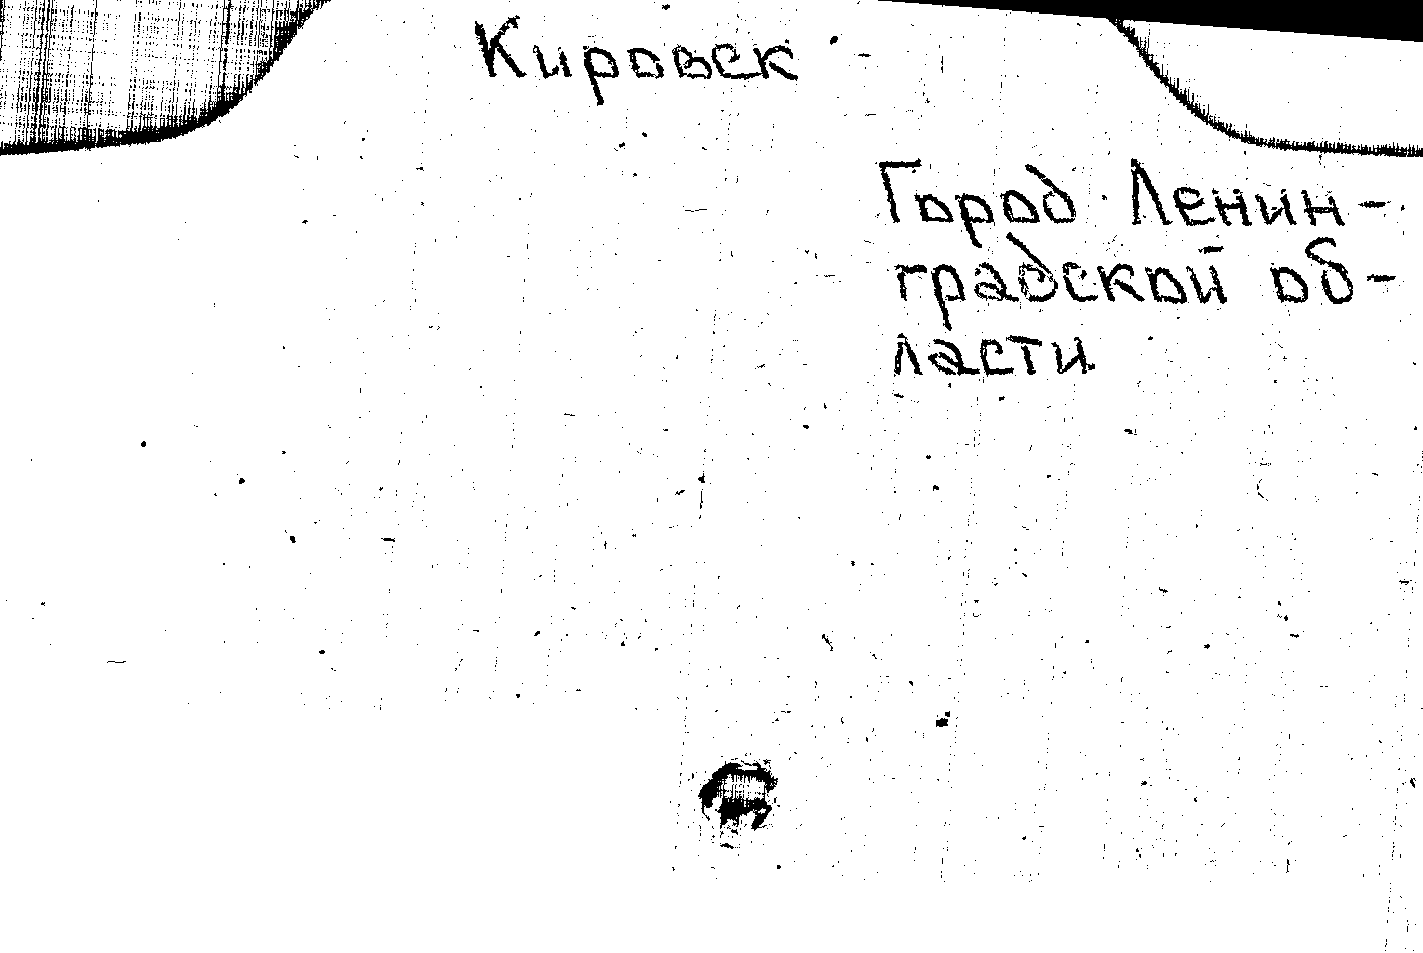 Кировск
Город Ленин-
градской об-
ласти